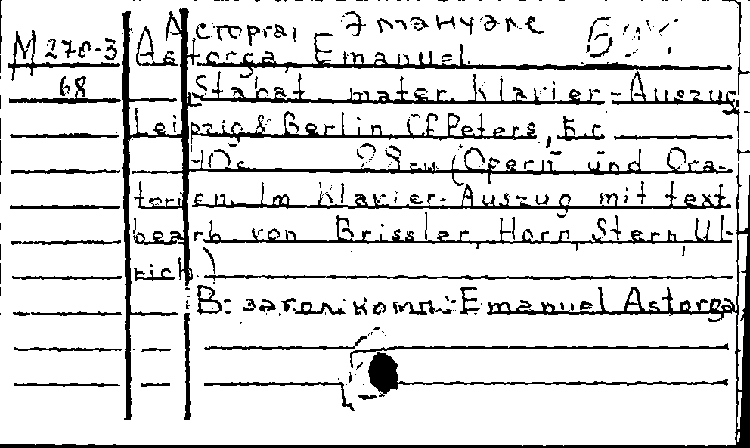 Асторга, Эмануэле
М 270-3 Astorga, Emanuel.
68 Stabat mater. Klavier-Auszug
Leipzig & Berlin, C.F. Peters, Б.г.
40c. 28см (Opern und Ora-
torien. Im Klavier-Auszug mit text
bearb von Brissler, Horn, Stern, Ul-
rich)
В: загол. комп.: Emanuel Astorga